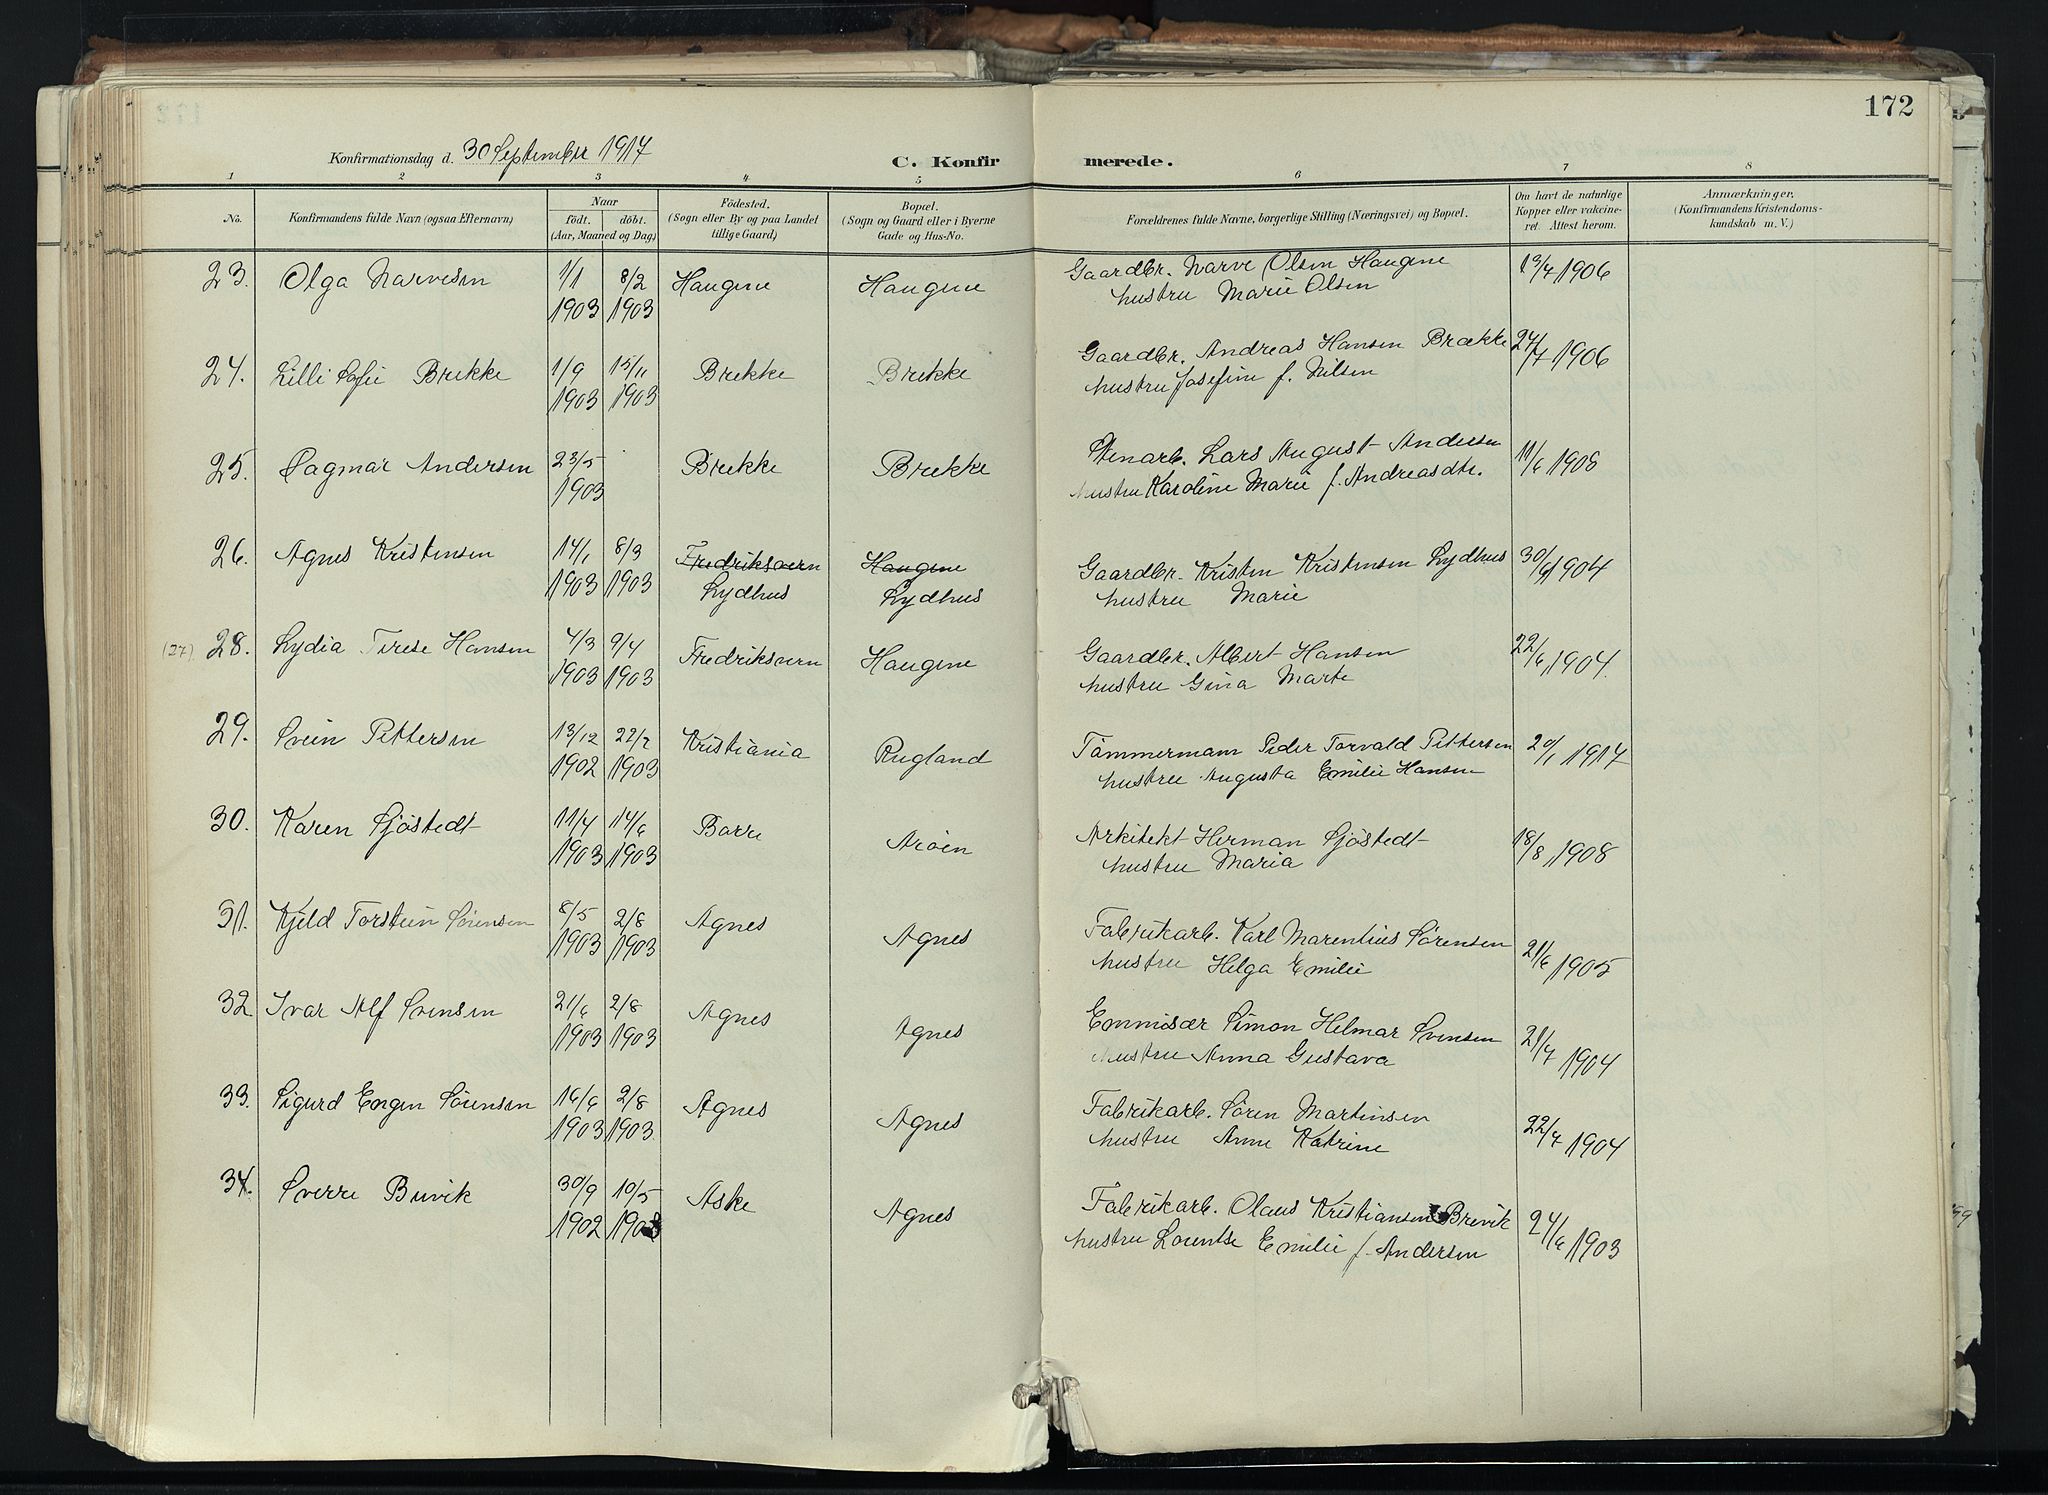 172
Konfirmationsdag d. 30 September 1917 C. Konfirmerede.
1 2 3 4 5 6 7 8
No. Konfirmandens fulde Navn (ogsaa Efternavn) Naar födt. döbt. (Aar, Maaned og Dag.) Födested. (Sogn eller By og paa Landet tillige Gaard.) Bopæl. (Sogn og Gaard eller i Byerne Gade og Hus-No. Forældrenes fulde Navne, borgerlige Stilling (Næringsvei) og Bopæl. Om havt de naturlige Kopper eller vakcineret. Attest herom. Anmærkninger. (Konfirmandens Kristendomskundskab m. V.)
23. Olga Narvesen 1/1 8/2 Haugene Haugene Gaardbr. Narve Olsen Haugene 13/7 1906
1903 1903 hustru Marie Olsen
24. Lilli Sofie Brekke 1/9 15/11 Brekke Brekke Gaardbr. Andreas Hansen Brække 24/7 1906
1903 1903 hustru Josefine f. Nilsen
25. Dagmar Andersen 23/5 Brekke Brekke Stenarb. Lars August Andersen 11/6 1908
1903 hustru Karoline Marie f. Andreasdtr.
26. Agnes Kristensen 14/1 8/3 Fredriksvern Haugene Gaardbr. Kristen Kristensen Lydhus 30/6 1904
1903 1903 Lydhus Lydhus hustru Marie
(27) 28. Lydia Terese Hansen 4/3 9/4 Fredriksvern Haugene Gaardbr. Albert Hansen 22/6 1904.
1903 1903 hustru Gina Marte
29. Svein Pettersen 13/12 22/2 Kristiania Rugland Tømmermann Peder Torvald Pettersen 20/1 1917
1902 1903 hustru Augusta Emilie Hansen
30. Karen Sjöstedt 11/4 14/6 Borre Arøen Arkitekt Herman Sjöstedt 18/8 1908
1903 1903 hustru Maria
31. Kjeld Torstein Sørensen 8/5 2/8 Agnes Agnes Fabrikarb. Karl Marentius Sørensen 21/6 1905
1903 1903 hustru Helga Emilie
32. Ivar Alf Svensen 21/6 2/8 Agnes Agnes Emmisær Simon Helmar Svensen 21/7 1904
1903 1903 hustru Anna Gustava
33. Sigurd Engen Sørensen 16/6 2/8 Agnes Agnes Fabrikarb. Søren Martinsen 22/7 1904
1903 1903 hustru Anne Katrine
34. Sverre Buvik 30/9 10/5 Aske Agnes Fabrikarb. Olaus Kristiansen Brevik 24/6 1903
1902 1903 hustru Lorentse Emilie f. Andersen